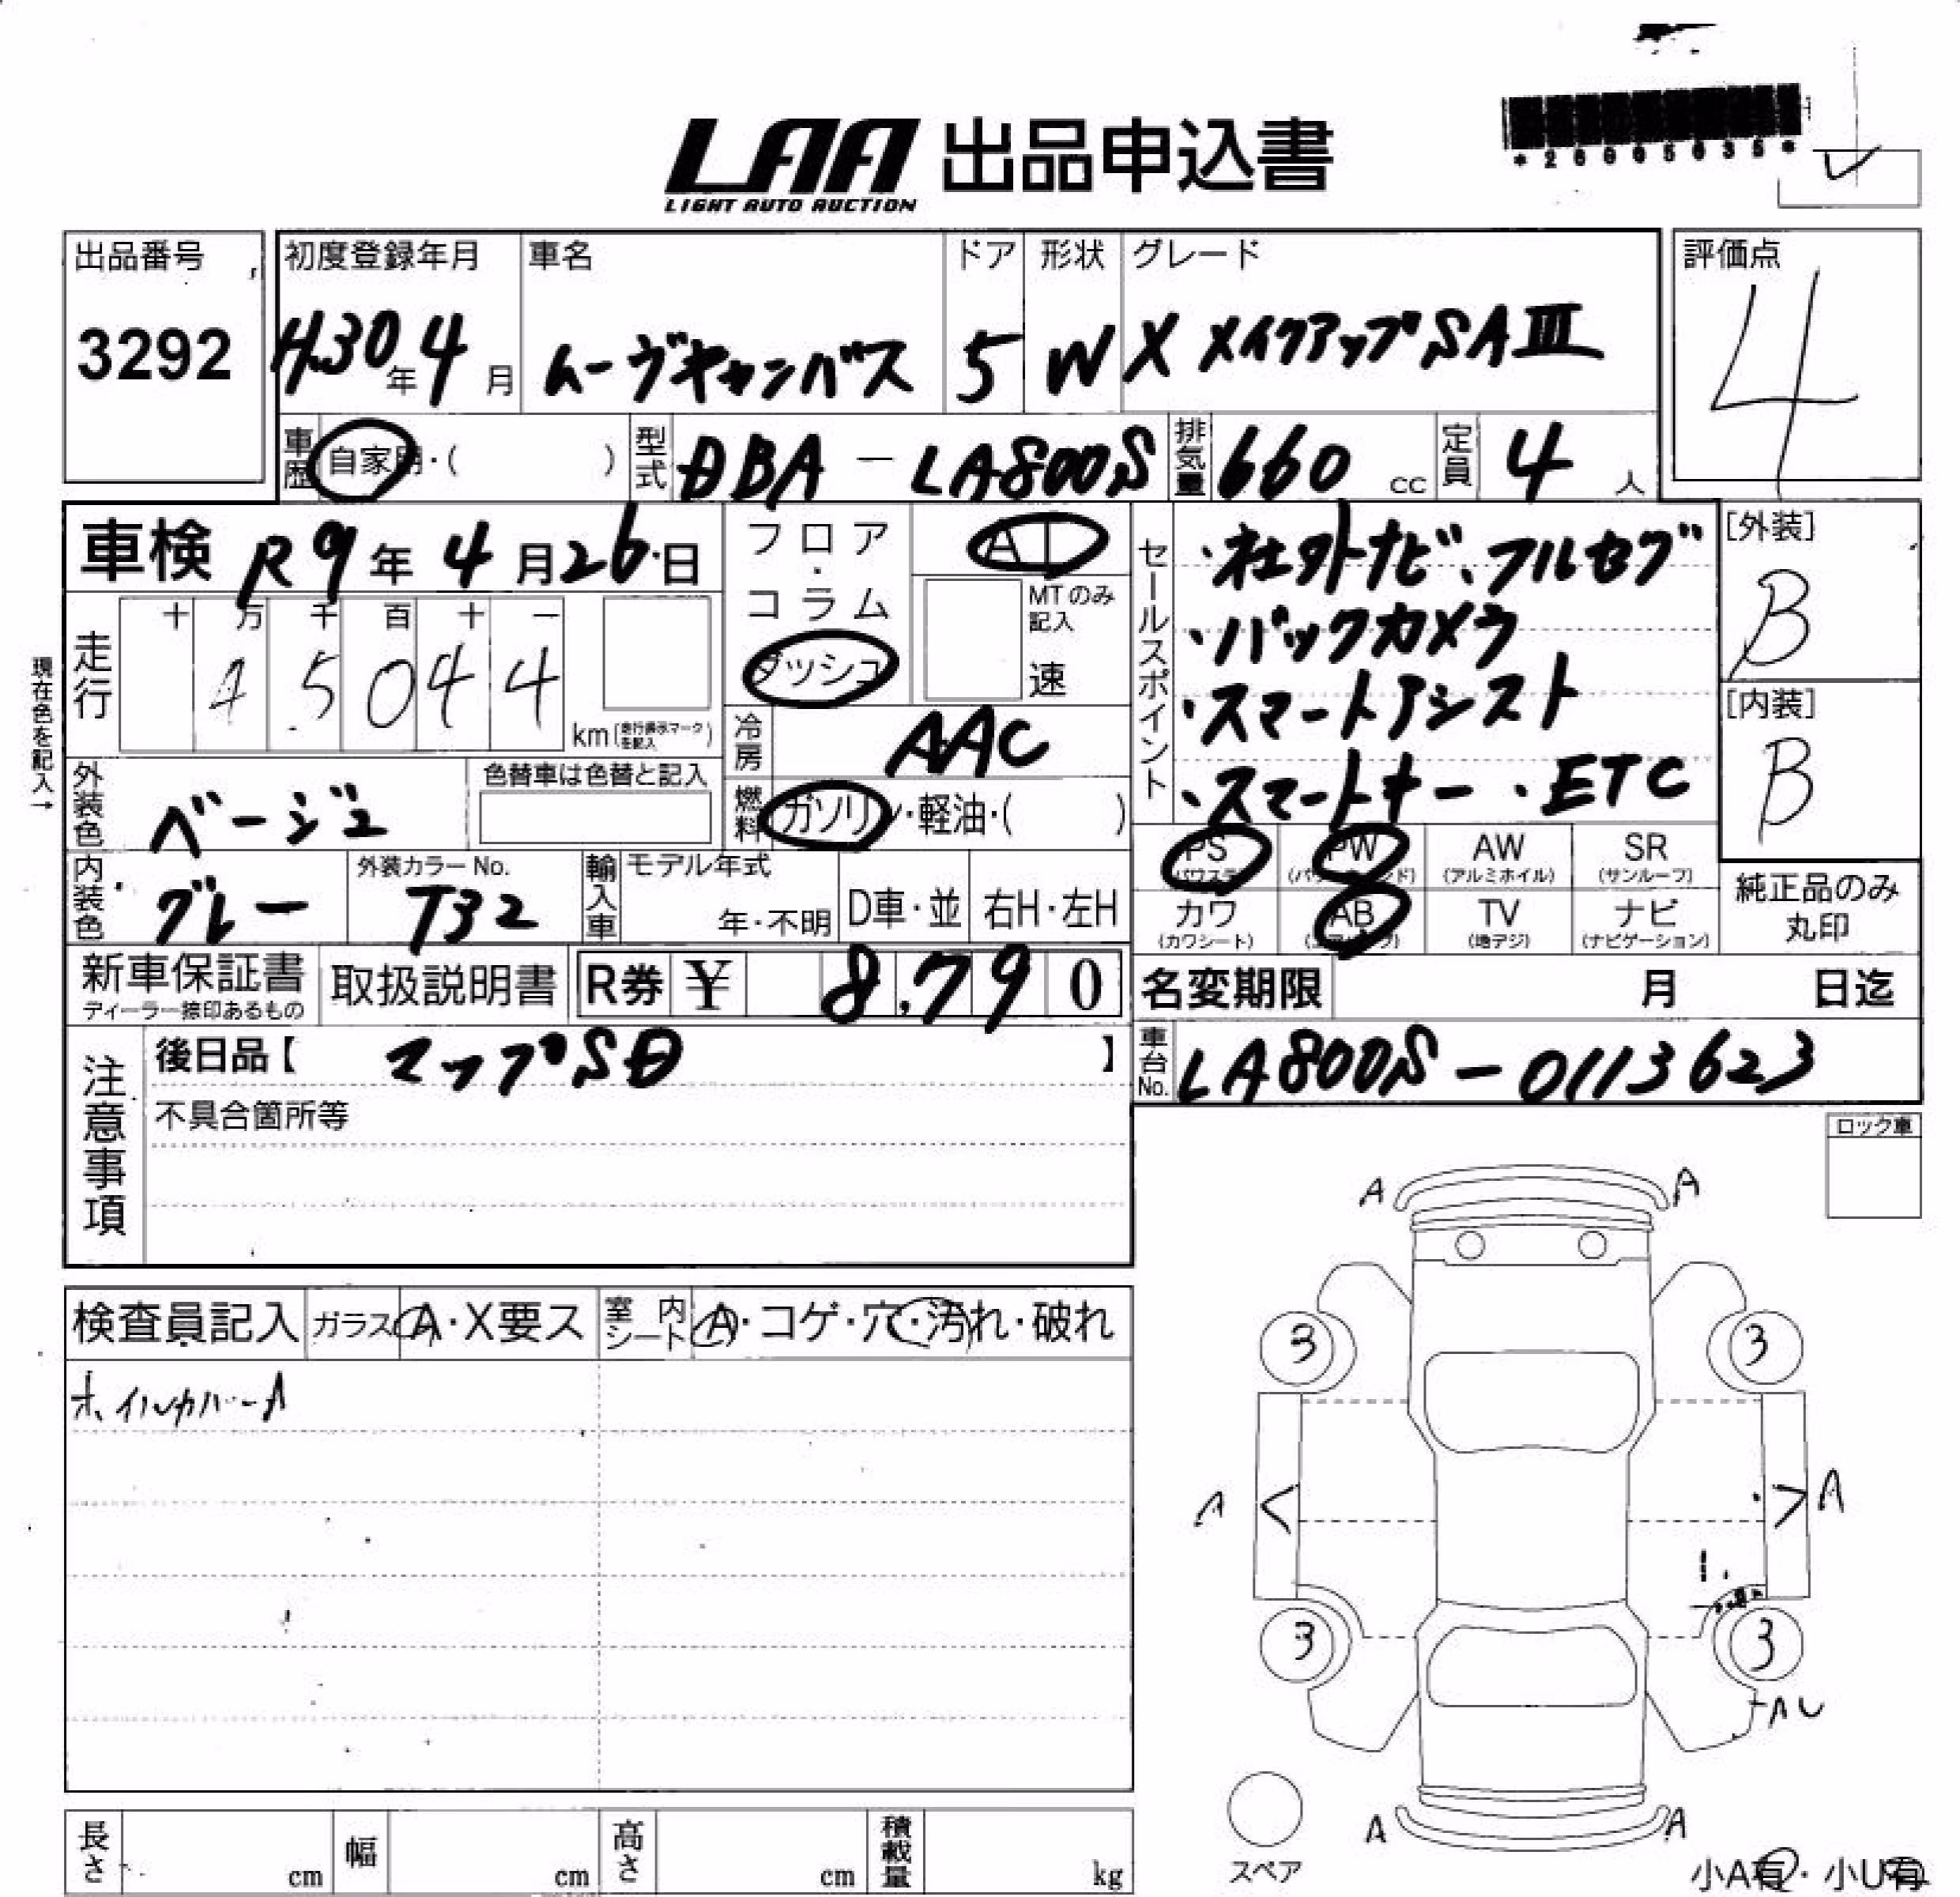 LAA 出品申込書
LIGHT AUTO AUCTION
*20005035*
出品番号
3292
初度登録年月
H30年4月
車名
ムーヴキャンバス
ドア
5
形状
W
グレード
X メイクアップSAⅢ
評価点
4
車歴 自家用・( )
型式 DBA - LA800S
排気量 660 cc
定員 4 人
車検 R9年4月26日
フロア・コラム
ダッシュ
AT
MTのみ記入
速
セールスポイント
・社外ナビ、フルセグ
・バックカメラ
・スマートアシスト
・スマートキー・ETC
[外装]
B
[内装]
B
現在色を記入→
走行 十 万 千 百 十 一
4 5 0 4 4
km (走行表示マークを記入)
冷房 AAC
外装色 ベージュ
色替車は色替と記入
燃料 ガソリン・軽油・( )
内装色 グレー
外装カラーNo.
T32
輸入車 モデル年式
年・不明 D車・並 右H・左H
PS (パワステ) PW AW (アルミホイル) SR (サンルーフ)
カワ (カワシート) AB TV (地デジ) ナビ (ナビゲーション)
純正品のみ丸印
新車保証書
ディーラー捺印あるもの
取扱説明書
R券 ¥ 8,790
名変期限 月 日迄
注意事項
後日品【 マップSD 】
不具合箇所等
車台No. LA800S-0113623
ロック車
検査員記入 ガラス A・X要ス 室内シート A・コゲ・穴・汚れ・破れ
ホイルカバーA
A A
3 3
A A
3 3
AU
A A
スペア
小A有・小U有
長さ cm 幅 cm 高さ cm 積載量 kg